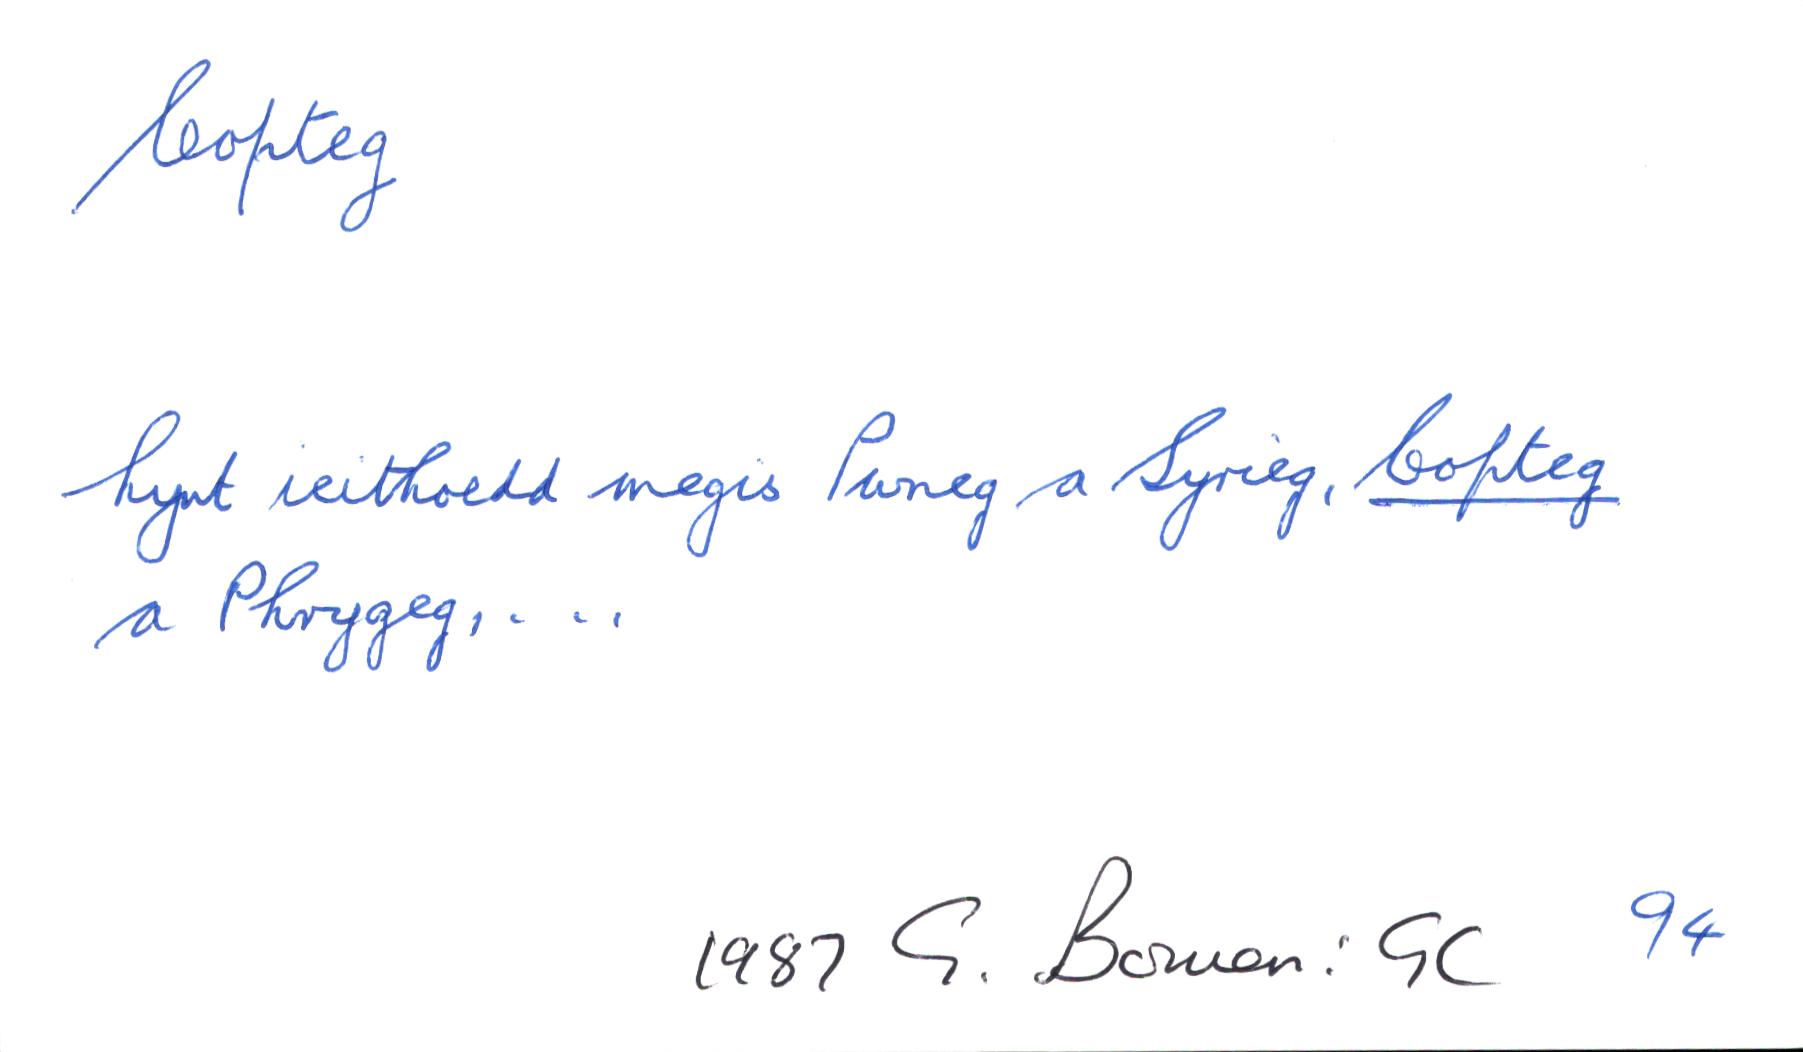 Copteg
hynt ieithoedd megis Pwneg a Syrieg, Copteg
a Phrygeg, . . . .
1987 G. Bowen: GC 94